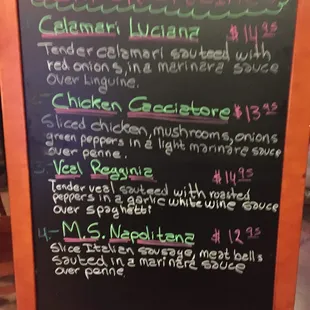 Calamari Luciana $14.95
Tender calamari sauteed with
red onions, in a marinara sauce
over Linguine.
Chicken Cacciatore $13.95
Sliced chicken, mushrooms, onions
green peppers in a light marinara sauce
over penne.
Veal Regginia $14.95
Tender veal sauteed with roasted
peppers in a garlic white wine sauce
over spaghetti
4- M.S. Napolitana $12.95
Slice Italian sausage, meat bells
sauted in a marinara sauce
over penne